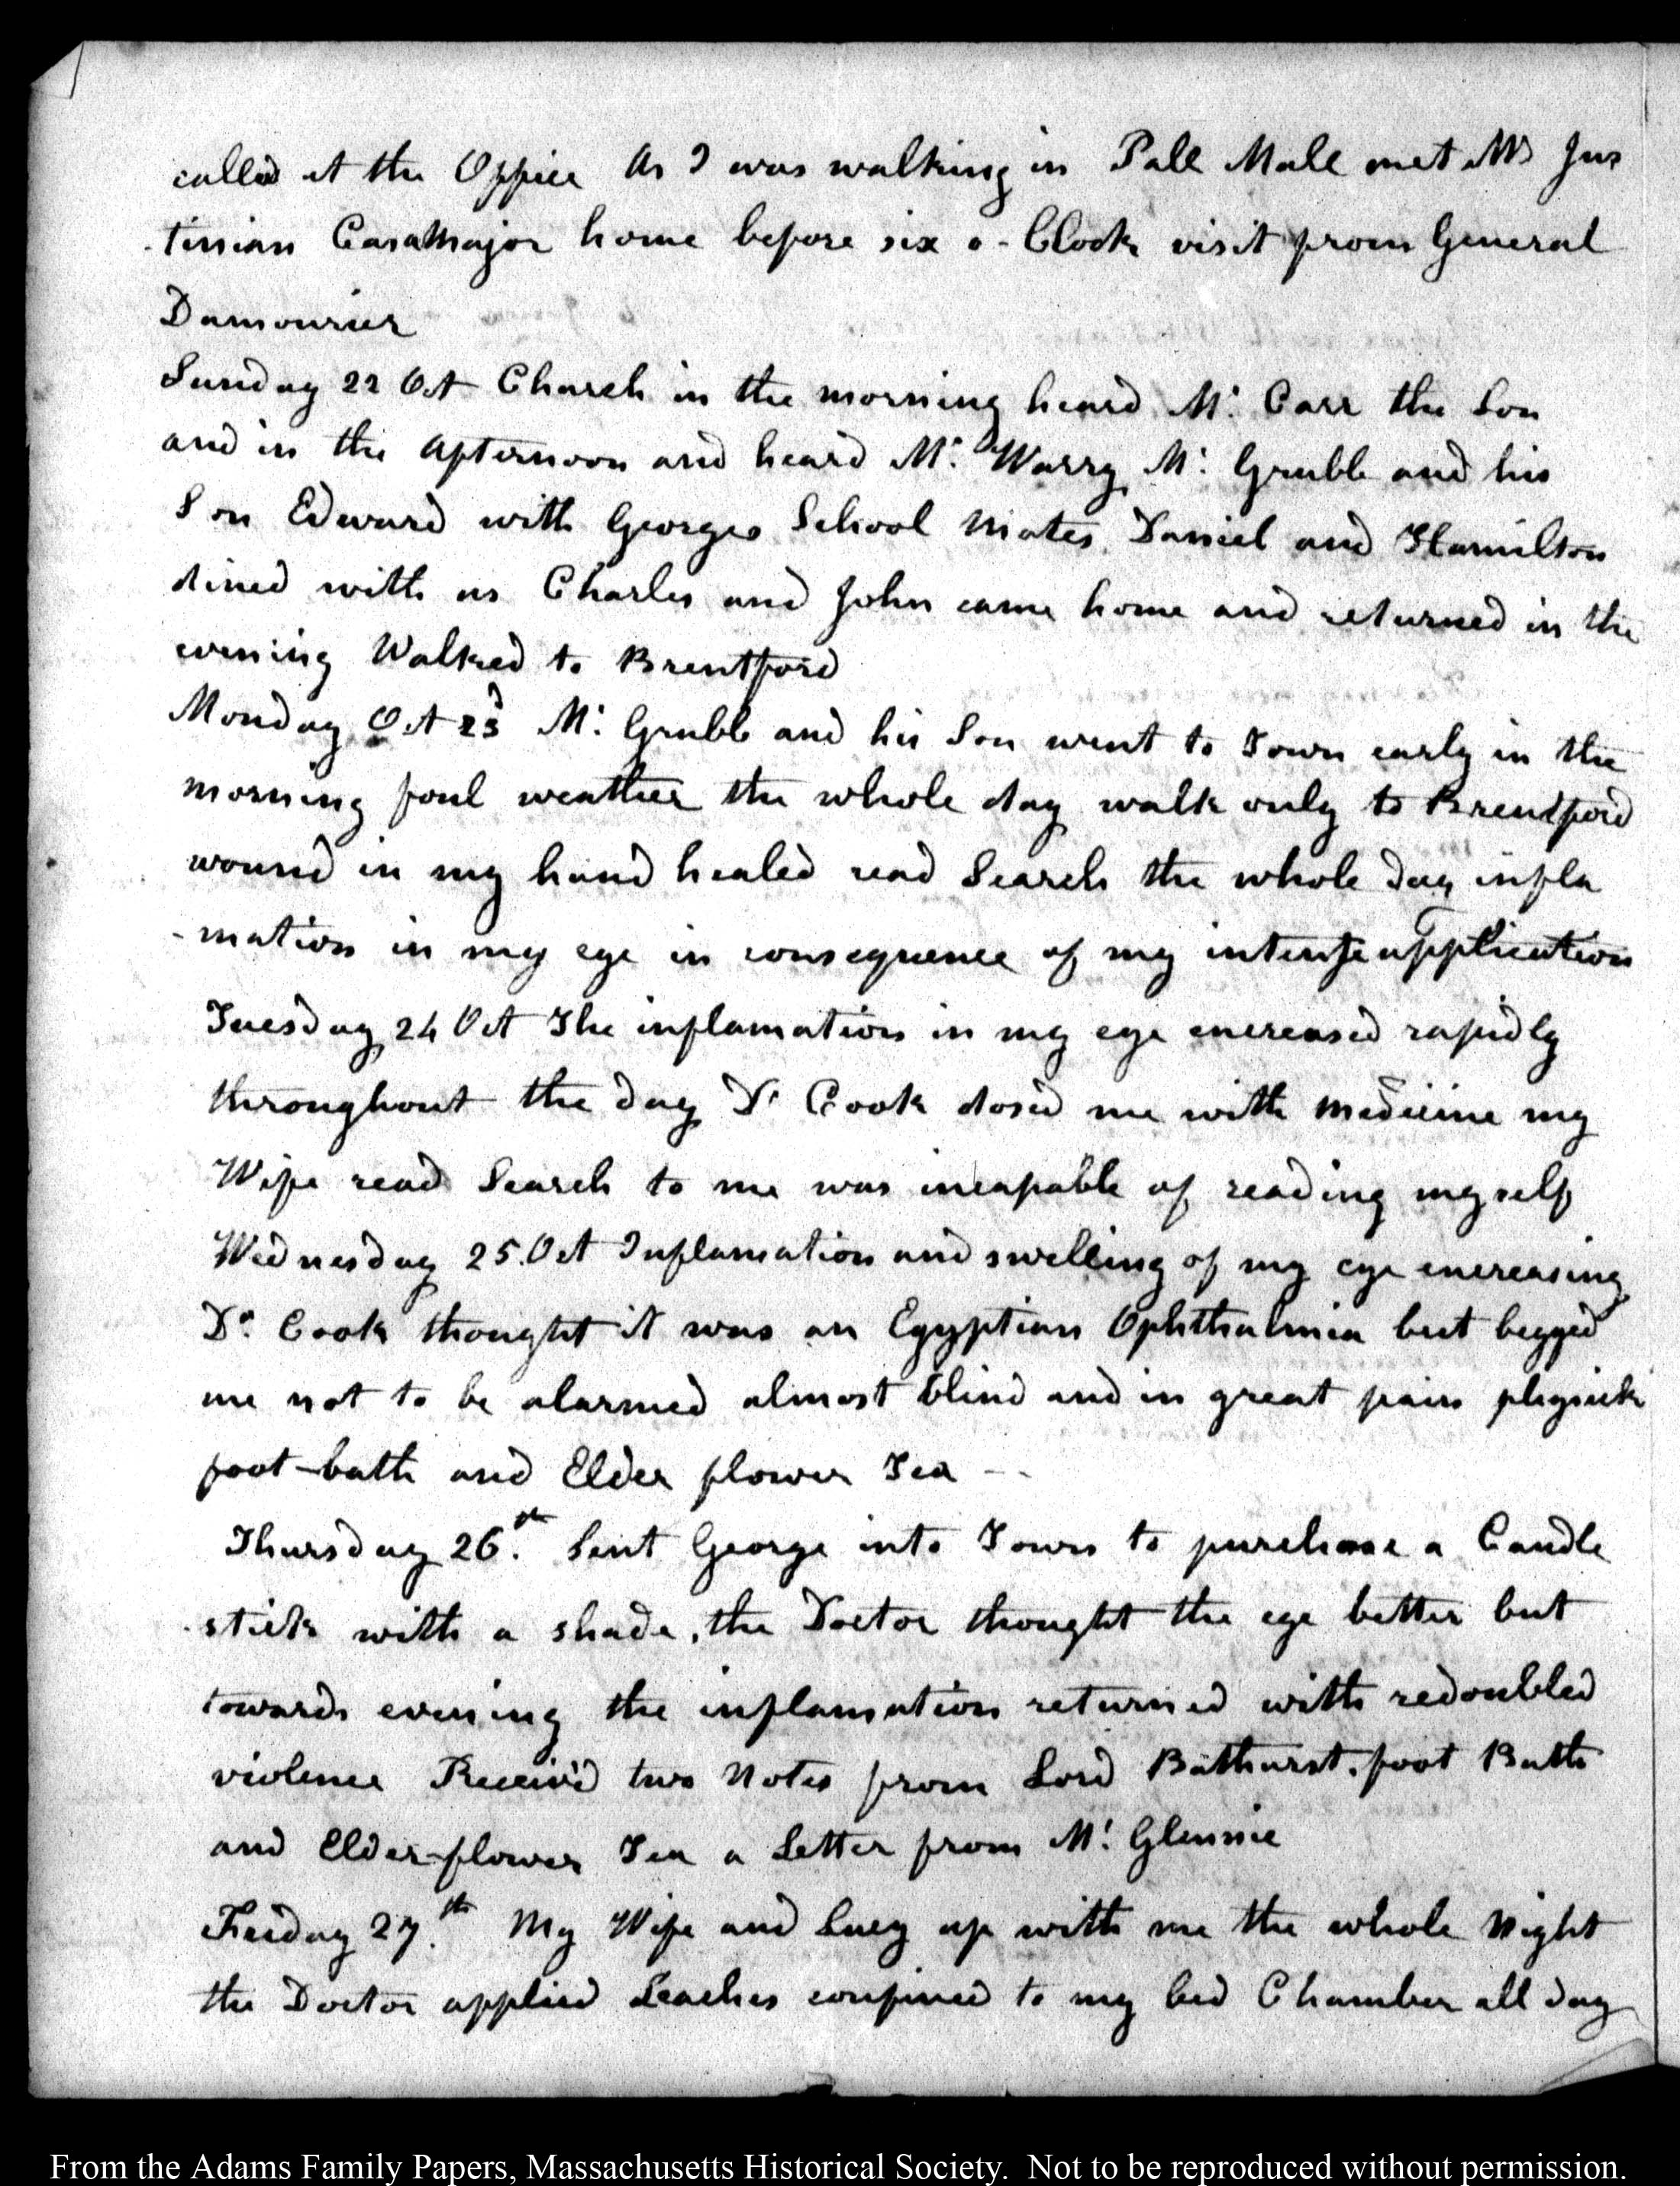 called at the Office As I was walking in Pall Mall met Mr Jus
-tinian Casamajor home before six o-Clock visit from General
Dumourier
Sunday 22 Oct Church in the morning heard Mr. Carr the Son
and in the Afternoon and heard Mr. Warry Mr. Grubb and his
Son Edward with Georges School Mates Daniel and Hamilton
dined with us Charles and John came home and returned in the
evening Walked to Brentford
Monday Oct 23d Mr. Grubb and his Son went to Town early in the
morning foul weather the whole day walk only to Brentford
wound in my hand healed read Search the whole day infla
-mation in my eye in consequence of my intense application
Tuesday 24 Oct The inflamation in my eye encreased rapidly
throughout the day Dr Cook dosed me with medicine my
Wife read Search to me was incapable of reading myself
Wednesday 25. Oct Inflamation and swelling of my eye encreasing
Dr. Cook thought it was an Egyptian Ophthalmia but begged
me not to be alarmed almost blind and in great pain physick
foot-bath and Elder flower Tea - -
Thursday 26.th Sent George into Town to purchase a Candle
-stick with a shade, the Doctor thought the eye better but
towards evening the inflamation returned with redoubled
violence Receiv'd two Notes from Lord Bathurst. foot Bath
and Elder-flower Tea a Letter from Mr. Glennie
Friday 27.th My Wife and Lucy up with me the whole Night
the Doctor applied Leaches confined to my bed Chamber all day
From the Adams Family Papers, Massachusetts Historical Society. Not to be reproduced without permission.